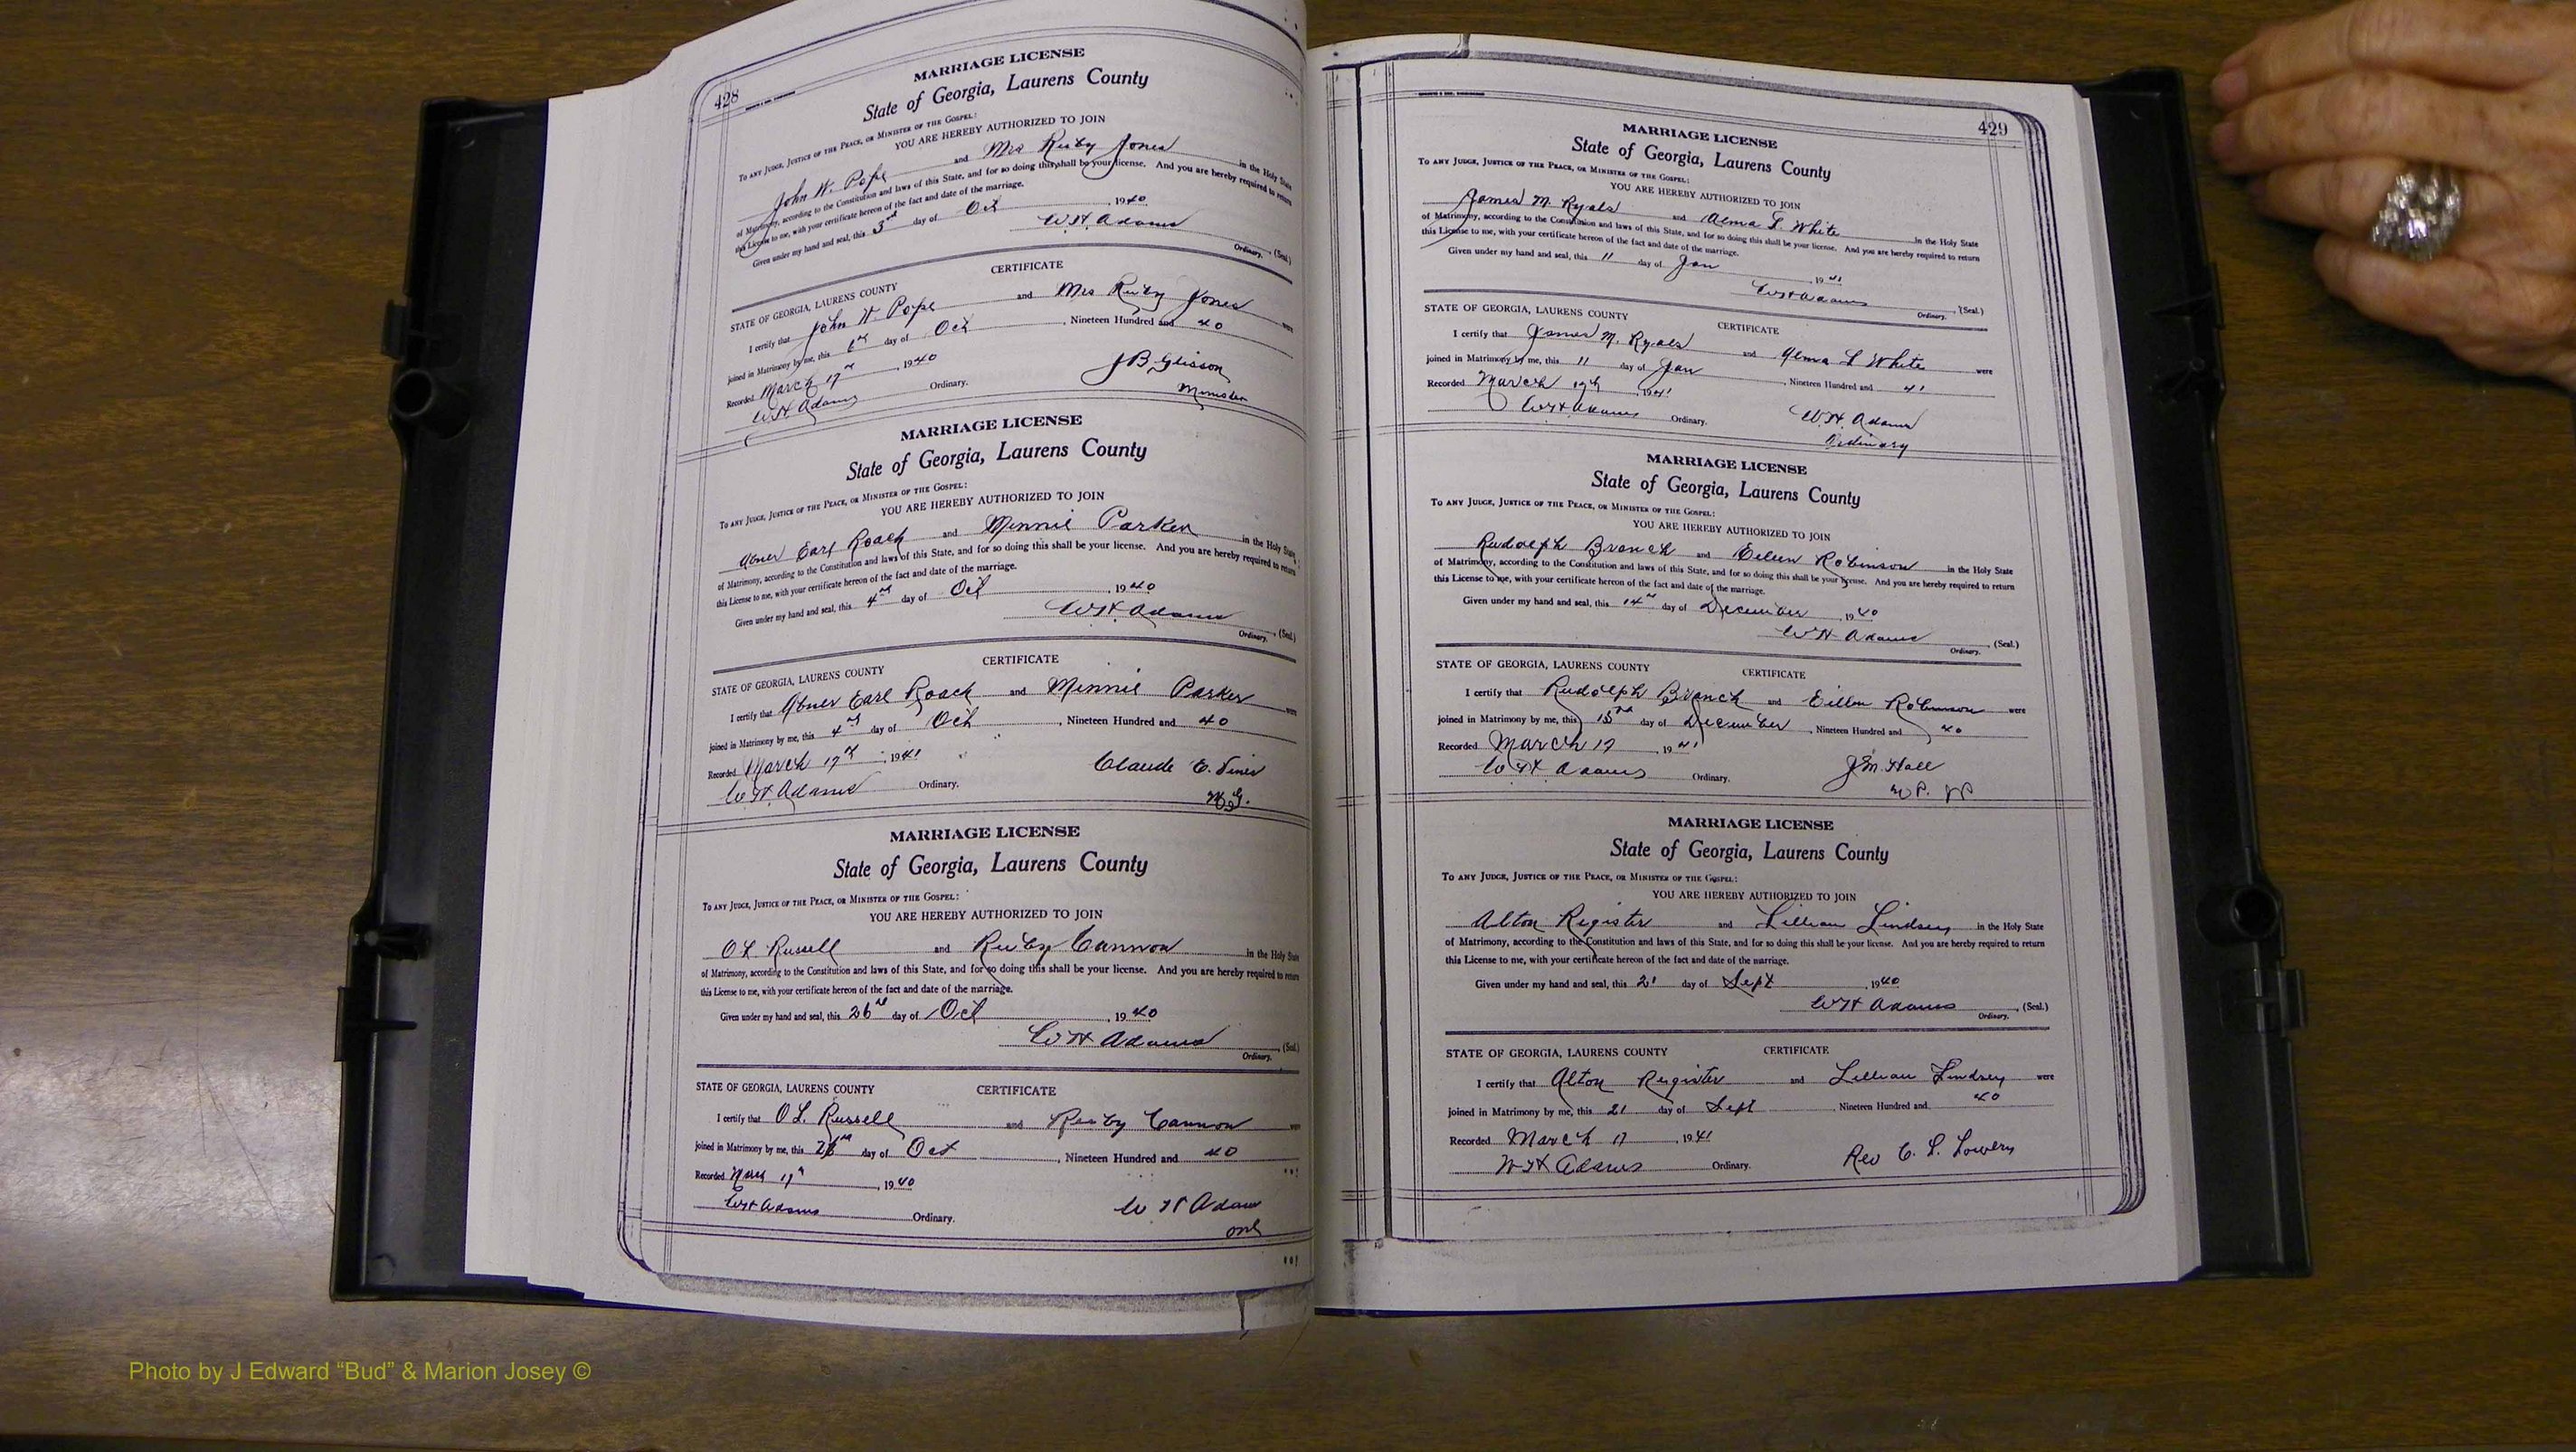 428
MARRIAGE LICENSE
State of Georgia, Laurens County
To any Judge, Justice of the Peace, or Minister of the Gospel:
YOU ARE HEREBY AUTHORIZED TO JOIN
John W. Pope and Mrs Ruby Jones in the Holy State
of Matrimony, according to the Constitution and laws of this State, and for so doing this shall be your license. And you are hereby required to return
this License to me, with your certificate hereon of the fact and date of the marriage.
Given under my hand and seal, this 3rd day of Oct, 1940
W.H. Adams
Ordinary. (Seal.)
CERTIFICATE
STATE OF GEORGIA, LAURENS COUNTY
I certify that John W. Pope and Mrs Ruby Jones were
joined in Matrimony by me, this 6th day of Oct, Nineteen Hundred and 40
Recorded March 17th, 1940
W.H. Adams Ordinary.
J B Glisson
Minister
MARRIAGE LICENSE
State of Georgia, Laurens County
To any Judge, Justice of the Peace, or Minister of the Gospel:
YOU ARE HEREBY AUTHORIZED TO JOIN
Abner Earl Roach and Minnie Parker in the Holy State
of Matrimony, according to the Constitution and laws of this State, and for so doing this shall be your license. And you are hereby required to return
this License to me, with your certificate hereon of the fact and date of the marriage.
Given under my hand and seal, this 4th day of Oct, 1940
W.H. Adams
Ordinary. (Seal.)
CERTIFICATE
STATE OF GEORGIA, LAURENS COUNTY
I certify that Abner Earl Roach and Minnie Parker were
joined in Matrimony by me, this 4th day of Oct, Nineteen Hundred and 40
Recorded March 17th, 1941
W.H. Adams Ordinary.
Claude E. Vines
M.G.
MARRIAGE LICENSE
State of Georgia, Laurens County
To any Judge, Justice of the Peace, or Minister of the Gospel:
YOU ARE HEREBY AUTHORIZED TO JOIN
O L. Russell and Ruby Cannon in the Holy State
of Matrimony, according to the Constitution and laws of this State, and for so doing this shall be your license. And you are hereby required to return
this License to me, with your certificate hereon of the fact and date of the marriage.
Given under my hand and seal, this 26th day of Oct, 1940
W H Adams
Ordinary. (Seal.)
STATE OF GEORGIA, LAURENS COUNTY CERTIFICATE
I certify that O L. Russell and Ruby Cannon were
joined in Matrimony by me, this 26th day of Oct, Nineteen Hundred and 40
Recorded 17th, 1940
W H Adams Ordinary.
W H Adams
Ord
429
MARRIAGE LICENSE
State of Georgia, Laurens County
To any Judge, Justice of the Peace, or Minister of the Gospel:
YOU ARE HEREBY AUTHORIZED TO JOIN
James M. Ryals and Alma L. White in the Holy State
of Matrimony, according to the Constitution and laws of this State, and for so doing this shall be your license. And you are hereby required to return
this License to me, with your certificate hereon of the fact and date of the marriage.
Given under my hand and seal, this 11 day of Jan, 1941
W H Adams (Seal.)
Ordinary.
STATE OF GEORGIA, LAURENS COUNTY CERTIFICATE
I certify that James M. Ryals and Alma L White were
joined in Matrimony by me, this 11 day of Jan, Nineteen Hundred and 41
Recorded March 19th, 1941
W H Adams Ordinary.
W.H. Adams
Ordinary
MARRIAGE LICENSE
State of Georgia, Laurens County
To any Judge, Justice of the Peace, or Minister of the Gospel:
YOU ARE HEREBY AUTHORIZED TO JOIN
Rudolph Branch and Eileen Robinson in the Holy State
of Matrimony, according to the Constitution and laws of this State, and for so doing this shall be your license. And you are hereby required to return
this License to me, with your certificate hereon of the fact and date of the marriage.
Given under my hand and seal, this 14th day of December, 1940
W H Adams (Seal.)
Ordinary.
STATE OF GEORGIA, LAURENS COUNTY CERTIFICATE
I certify that Rudolph Branch and Eillen Robinson were
joined in Matrimony by me, this 15th day of December, Nineteen Hundred and 40
Recorded March 17, 1941
W H Adams Ordinary.
J M. Hall
MARRIAGE LICENSE
State of Georgia, Laurens County
To any Judge, Justice of the Peace, or Minister of the Gospel:
YOU ARE HEREBY AUTHORIZED TO JOIN
Alton Register and Lillian Lindsey in the Holy State
of Matrimony, according to the Constitution and laws of this State, and for so doing this shall be your license. And you are hereby required to return
this License to me, with your certificate hereon of the fact and date of the marriage.
Given under my hand and seal, this 21 day of Sept, 1940
W H Adams (Seal.)
Ordinary.
STATE OF GEORGIA, LAURENS COUNTY CERTIFICATE
I certify that Alton Register and Lillian Lindsey were
joined in Matrimony by me, this 21 day of Sept, Nineteen Hundred and 40
Recorded March 17, 1941
W H Adams Ordinary.
Rev C. L. Lowery
Photo by J Edward “Bud” & Marion Josey ©